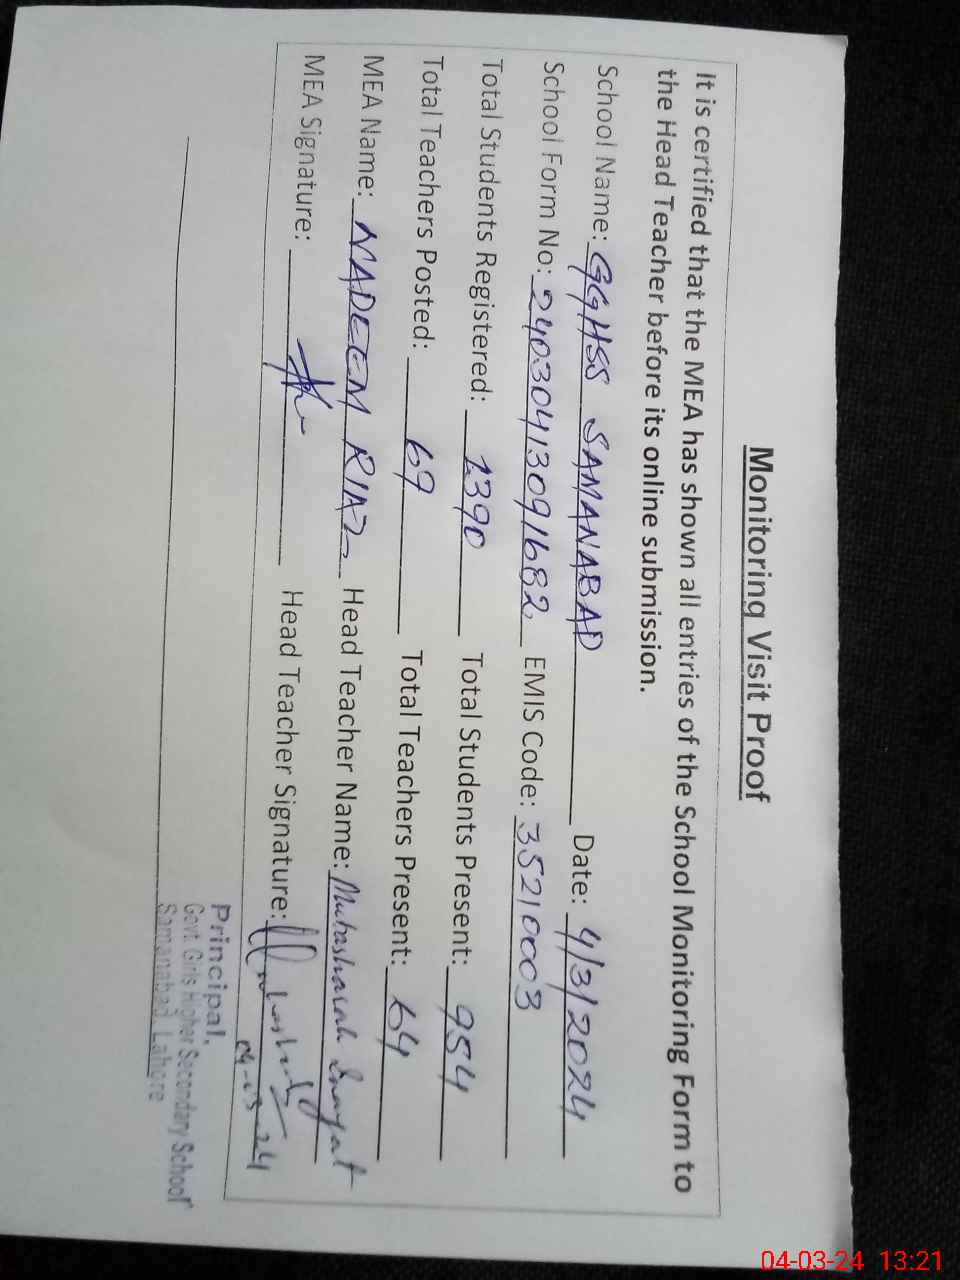 Monitoring Visit Proof
It is certified that the MEA has shown all entries of the School Monitoring Form to
the Head Teacher before its online submission.
School Name: GGHSS SAMANABAD Date: 4/3/2024
School Form No: 24030413091682 EMIS Code: 35210003
Total Students Registered: 1390 Total Students Present: 954
Total Teachers Posted: 69 Total Teachers Present: 64
MEA Name: NADEEM RIAZ Head Teacher Name: Mubasharah Inayat
MEA Signature: Head Teacher Signature:
04-03-24
Principal,
Govt. Girls Higher Secondary School
Samanabad, Lahore
04-03-24 13:21